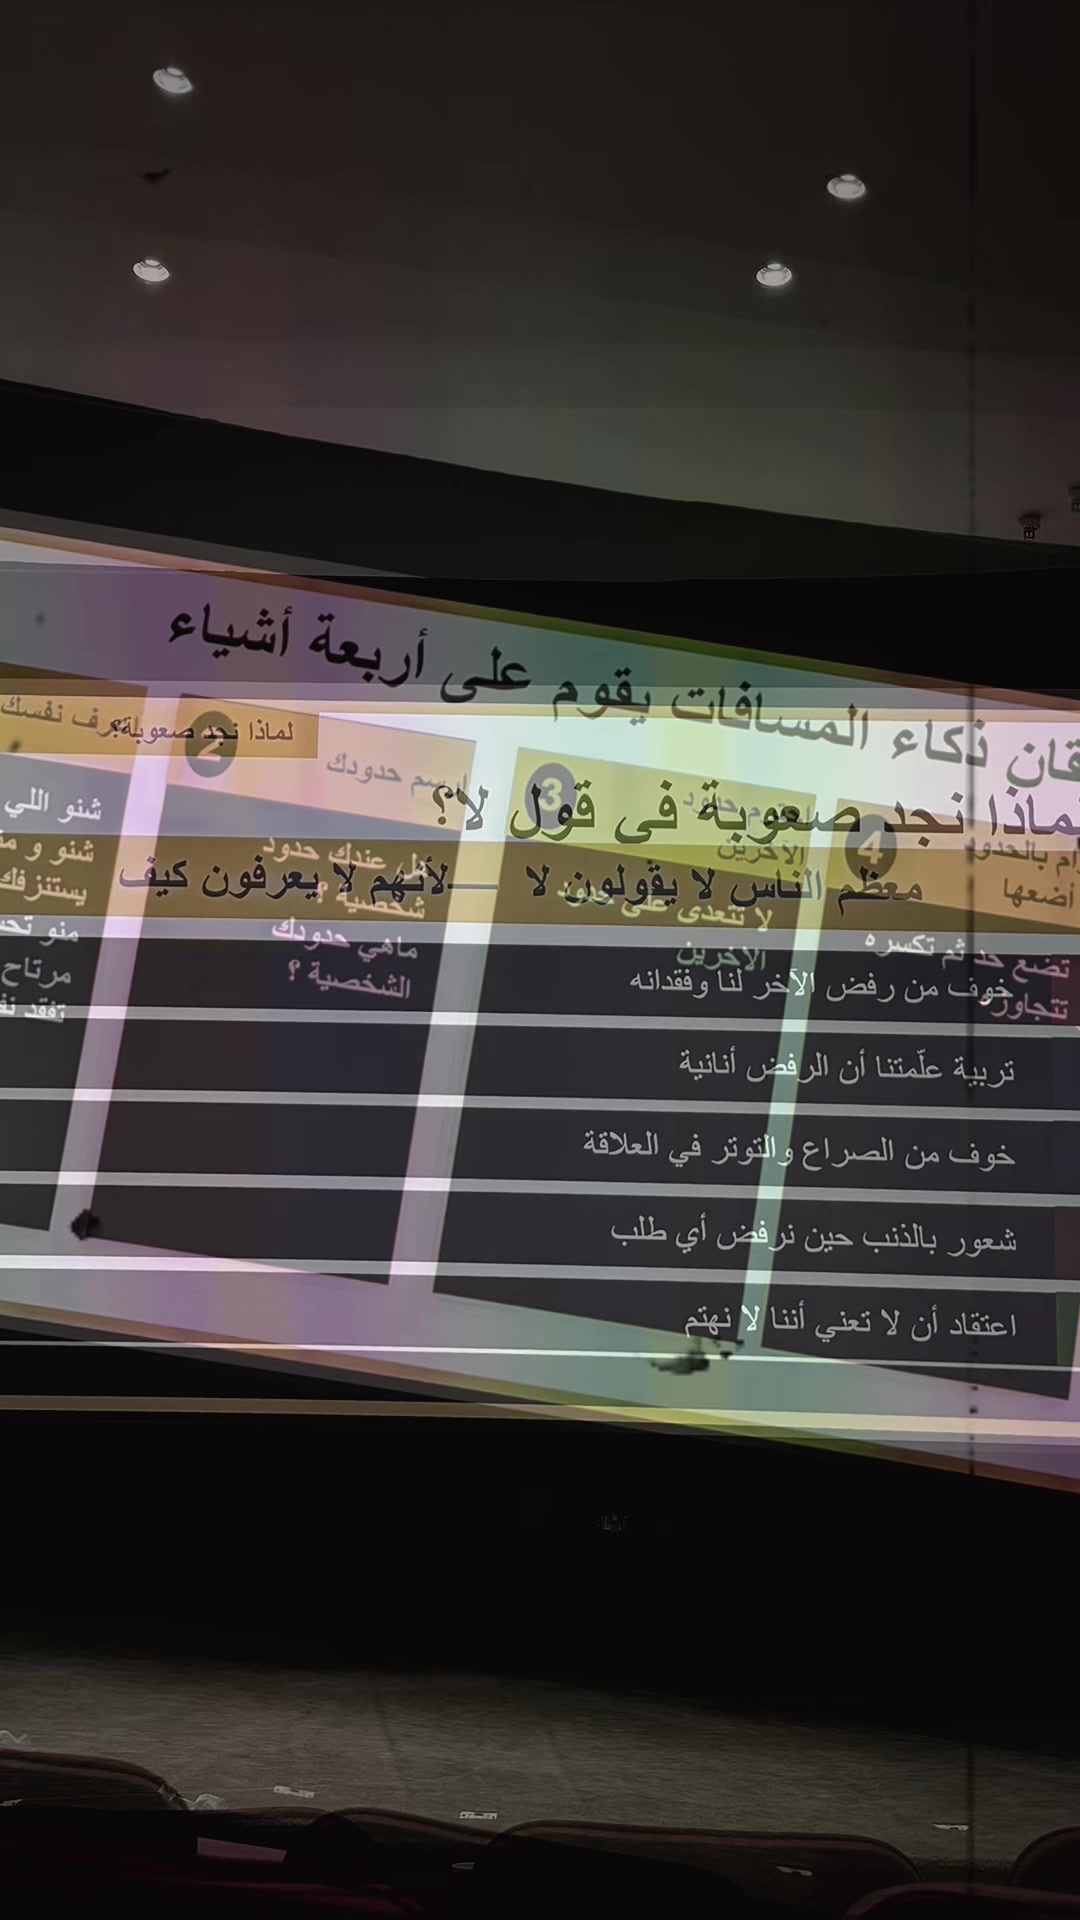 قان ذكاء المسافات يقوم على أربعة أشياء
ف نفسك
شنو اللي
شنو و
يستنزفك
منو
مرتاح
تفقد
2
ارسم حدودك
هل عندك حدود
شخصية ؟
ماهي حدودك
الشخصية ؟
3
حدود
الآخرين
لا تتعدى على
الآخرين
4
بالحدود
أضعها
تضع حد ثم تكسره
لماذا نجد صعوبة؟
لماذا نجد صعوبة في قول لا؟
معظم الناس لا يقولون لا —لأنهم لا يعرفون كيف
خوف من رفض الآخر لنا وفقدانه
تربية علّمتنا أن الرفض أنانية
خوف من الصراع والتوتر في العلاقة
شعور بالذنب حين نرفض أي طلب
اعتقاد أن لا تعني أننا لا نهتم